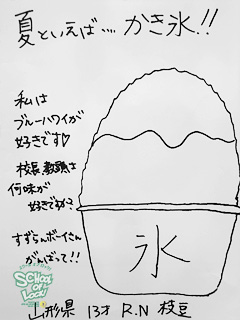 夏といえば....かき氷!!
私は
ブルーハワイが
好きです♡
校長教頭は
何味が
好きですか?
すずらんボーイさん
がんばって!!
氷
SCHOOL OF LOCK!
山形県 13才 R.N 枝豆